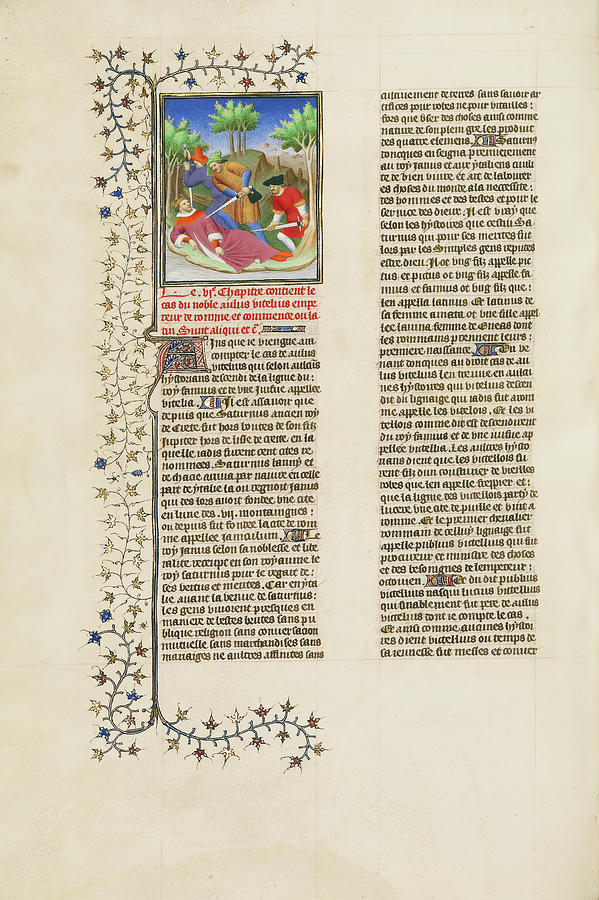 Le .vi.e Chapitre contient le
cas du noble aulus vitelius empe
reur de romme. et commence ou la
tin Sunt aliqui et c̄
Ains que ie viengne a ra
compter le cas de aulus
vitelius qui selon aulcūs
hystorians descendi de la ligne du:
roy faunus et de une iuifue appellee
vitelia. Il est assavoir que
depuis que Saturnus ancien roy
de Crete fut hors boutes de son filz
Jupiter hors de lisle de crete. en la
quelle iadis furent cent cites re
nommees. Saturnus banny et
dechace arriva par navire en celle
part de ytalie la ou regnoit janus
qui des lors avoit fondee une cite
en lune des .vij. montaingnes:
ou depuis fut fondee la cite de rom
me appellee janiculum. Le
roy janus selon sa noblesse et libe
ralite receupt en son royaume le
roy saturnus pour le regart de:
ses vertus et merites. Car en yta
lie avant la venue de saturnus:
les gens vivoient presques en
maniere de bestes brutes sans pu
blique religion sans conversacion
mutuelle sans marchandises sans
mariaiges ne aultres affinites sans
aultivement de terres sans savoir ar
tifices pour robes ne pour vitailles:
fors que user des choses ainsi comme
nature de son plein gre les produit
des quatre elemens. Saturnus
doncques enseigna premierement
au roy janus et aux ytaliens civili
te de bien vivre et art de labourer
es choses du monde a la necessite:
des hommes et des bestes et pour le
service des dieux. Il est vray que
selon les hystoires que cestui Sa
turnus qui pour ses merites fut
lors par les simples gens repute
estre dieu. Il ot ung filz appelle pic
us. et picus ot ung filz appelle fau
nus et faunus ot ung filz. que:
len appella latinus Et latinus de
sa femme amata ot une fille appel
lee lavina femme de Eneas dont
les rommains prennent leurs:
premiere naissance. Ou ve
nant doncques au droit cas de au
lus vitelius len treuve en aulcu
nes hystoires que vitelius descen
dit du lignaige qui iadis fut a rom
me appelle les vitelois. Et les vi
tellois comme dit est descendirent
du roy faunus et de une iuifue ap
pellee vitellia. Les aultres hysto
rians dient que les vitellois fu
rent filz dun cousturier de vieilles
robes que len appelle freppier et:
que la ligne des vitellois party de
lucere une cite de puille et vint a
romme. Et le premier chevalier
rommain de cellui lignaige fut
appelle publius vitellius qui fut
procureur et ministre des choses
et des besongnes de lempereur:
octovien. Et du dit publius
vitellius nasqui lucius vitellius
qui finablement fut pere de aulus
vitellius dont ie compte le cas.
Et ainsi comme aucunes hystoi
res dient vitellius ou temps de
sa ieunesse fut messes et conver